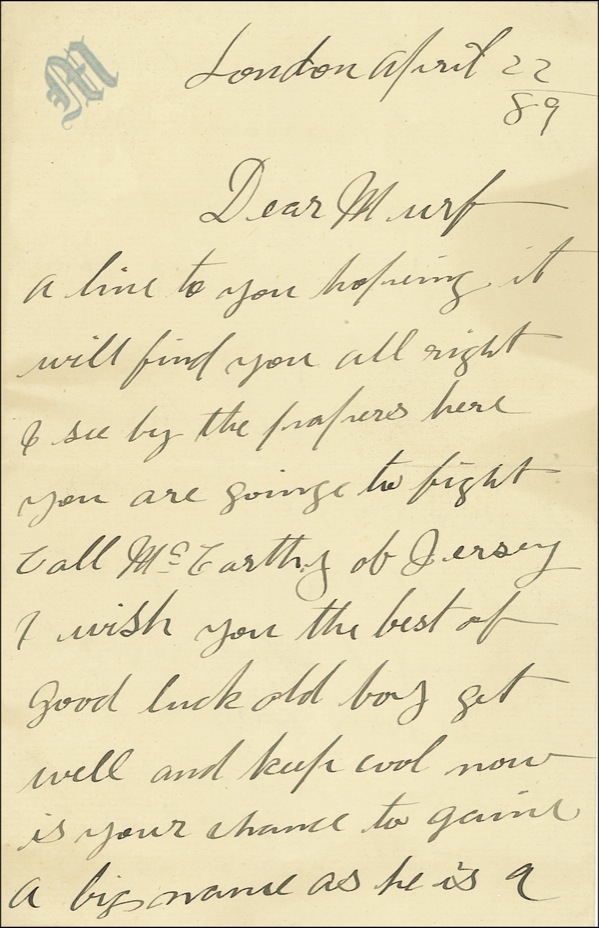 M
London April 22
89
Dear Murf
A line to you hopeing it
will find you all right
I see by the papers here
you are goinge to fight
Call McCarthy of Jersey
I wish you the best of
good luck old boy get
well and keep cool now
is your chance to gaine
A big name as he is a